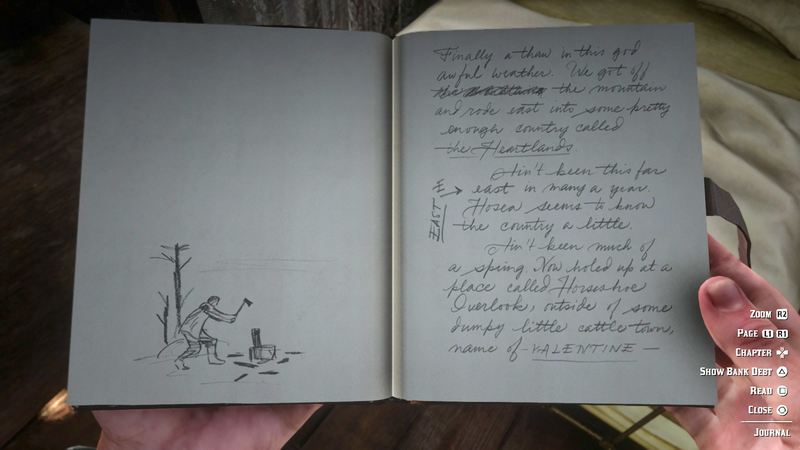 Finally a thaw in this god
awful weather. We got off
the mountain
and rode east into some pretty
enough country called
the Heartlands.
Ain't been this far
east in many a year.
Hosea seems to know
the country a little.
EAST
Ain't been much of
a spring. Now holed up at a
place called Horseshoe
Overlook, outside of some
dumpy little cattle town,
name of - VALENTINE -
ZOOM R2
PAGE L1 R1
CHAPTER
SHOW BANK DEBT
READ
CLOSE
JOURNAL